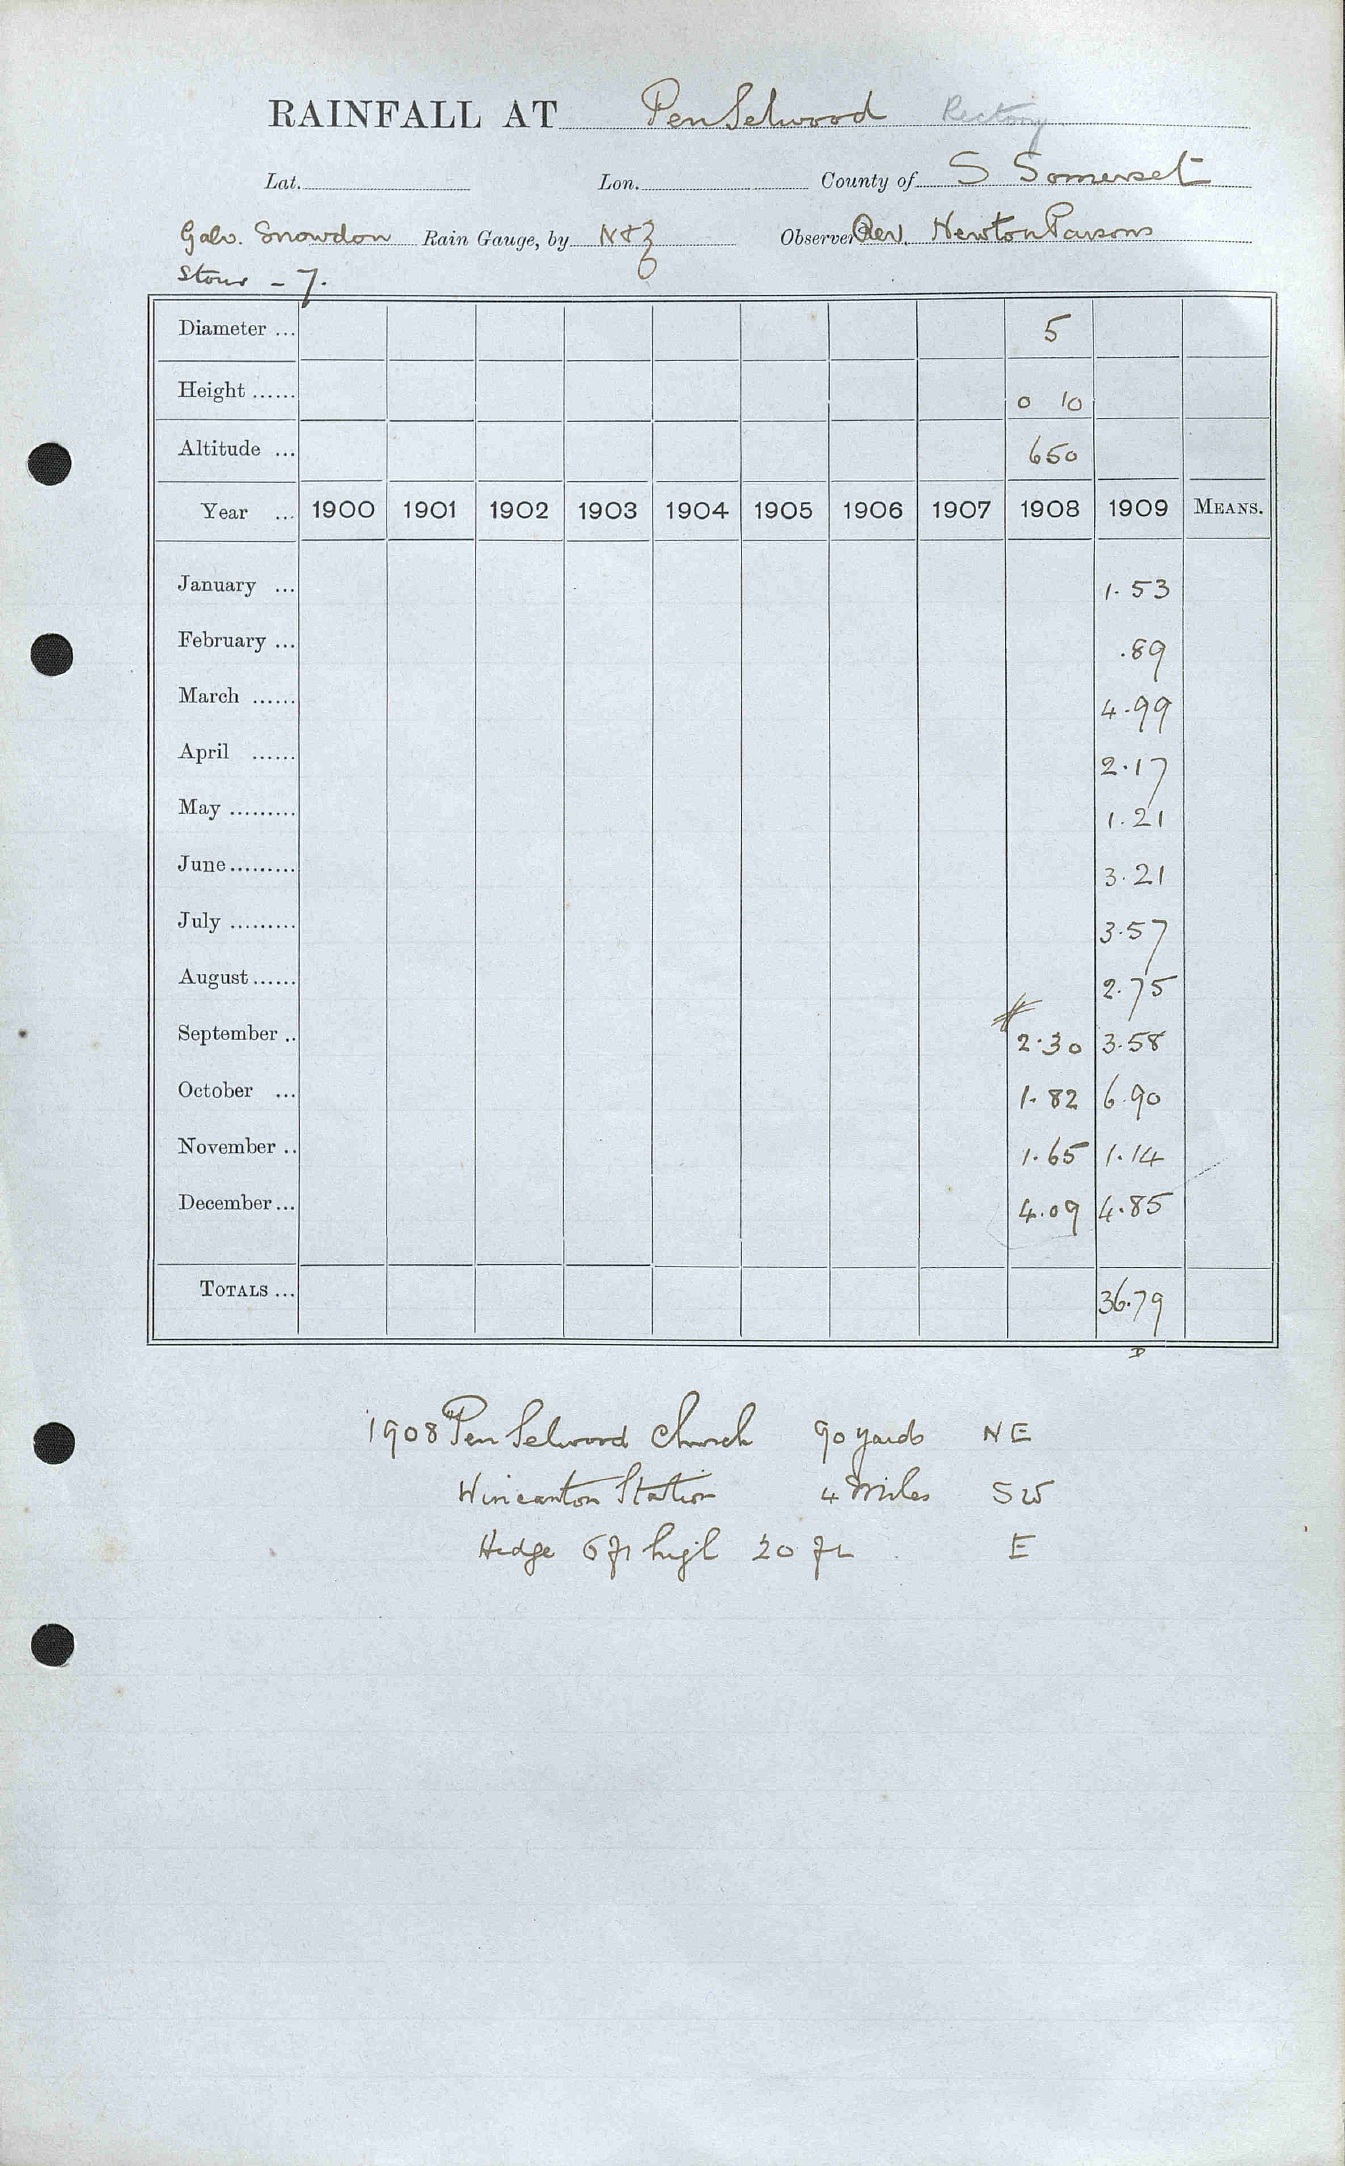 RAINFALL AT Pen Selwood Rectory
Lat. Lon. County of S Somerset
Galv. Snowdon Rain Gauge, by N & Z Observer Rev. Newton Parsons
Stour - 7.
Diameter ... 5
Height ...... 0 10
Altitude ... 650
Year ... 1900 1901 1902 1903 1904 1905 1906 1907 1908 1909 MEANS.
January ... 1.53
February ... .89
March ...... 4.99
April ...... 2.17
May ......... 1.21
June ......... 3.21
July ......... 3.57
August ...... 2.75
September .. 2.30 3.58
October ... 1.82 6.90
November .. 1.65 1.14
December ... 4.09 4.85
TOTALS ... 36.79
1908 Pen Selwood Church 90 yards NE
Wincanton Station 4 Miles SW
Hedge 6 ft high 20 ft E